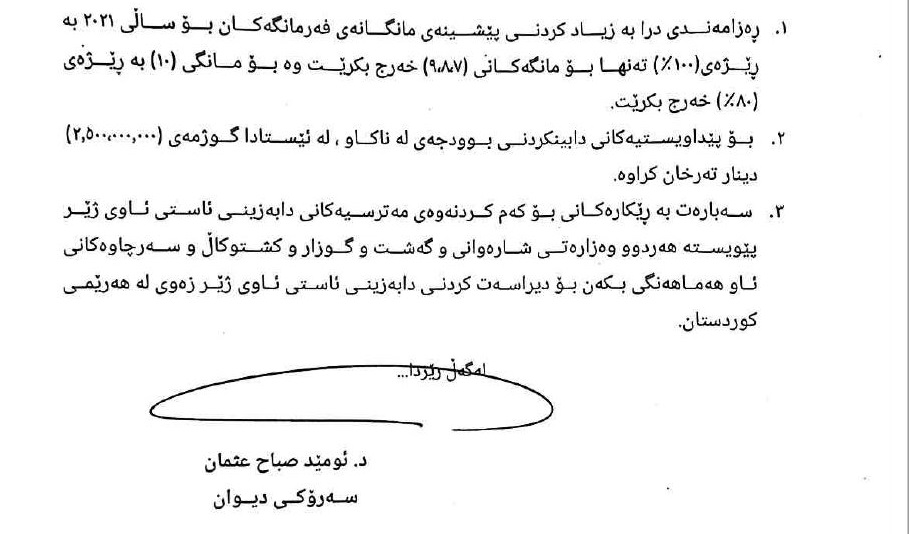 ١. ڕەزامەندی درا بە زیاد کردنی پێشینەی مانگانەی فەرمانگەکان بۆ ساڵی ٢٠٢١ بە
ڕێژەی(١٠٠٪) تەنها بۆ مانگەکانی (٩،٨،٧) خەرج بکرێت وە بۆ مانگی (١٠) بە ڕێژەی
(٨٠٪) خەرج بکرێت.
٢. بۆ پێداویستیەکانی دابینکردنی بوودجەی لە ناکاو ، لە ئێستادا گوژمەی (٢,٥٠٠,٠٠٠,٠٠٠)
دینار تەرخان کراوە.
٣. سەبارەت بە ڕێکارەکانی بۆ کەم کردنەوەی مەترسیەکانی دابەزینی ئاستی ئاوی ژێر
پێویستە هەردوو وەزارەتی شارەوانی و گەشت و گوزار و کشتوکاڵ و سەرچاوەکانی
ئاو هەماهەنگی بکەن بۆ دیراسەت کردنی دابەزینی ئاستی ئاوی ژێر زەوی لە هەرێمی
کوردستان.
لەگەڵ رێزدا...
د. ئومێد صباح عثمان
سەرۆکی دیوان